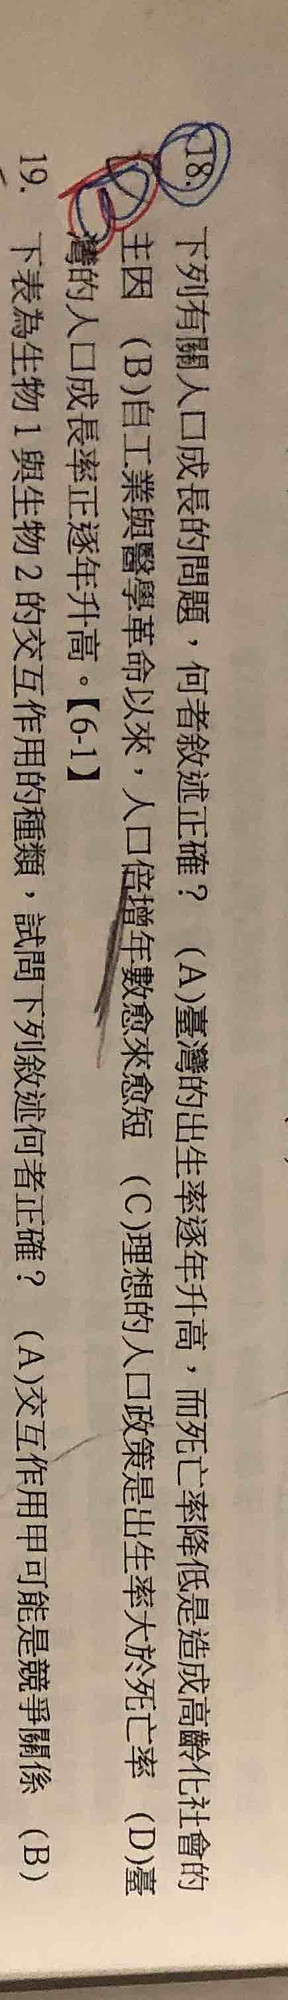 18. 下列有關人口成長的問題，何者敘述正確？ (A)臺灣的出生率逐年升高，而死亡率降低是造成高齡化社會的
主因 (B)自工業與醫學革命以來，人口倍增年數愈來愈短 (C)理想的人口政策是出生率大於死亡率 (D)臺
灣的人口成長率正逐年升高。【6-1】
19. 下表為生物1與生物2的交互作用的種類，試問下列敘述何者正確？ (A)交互作用甲可能是競爭關係 (B)